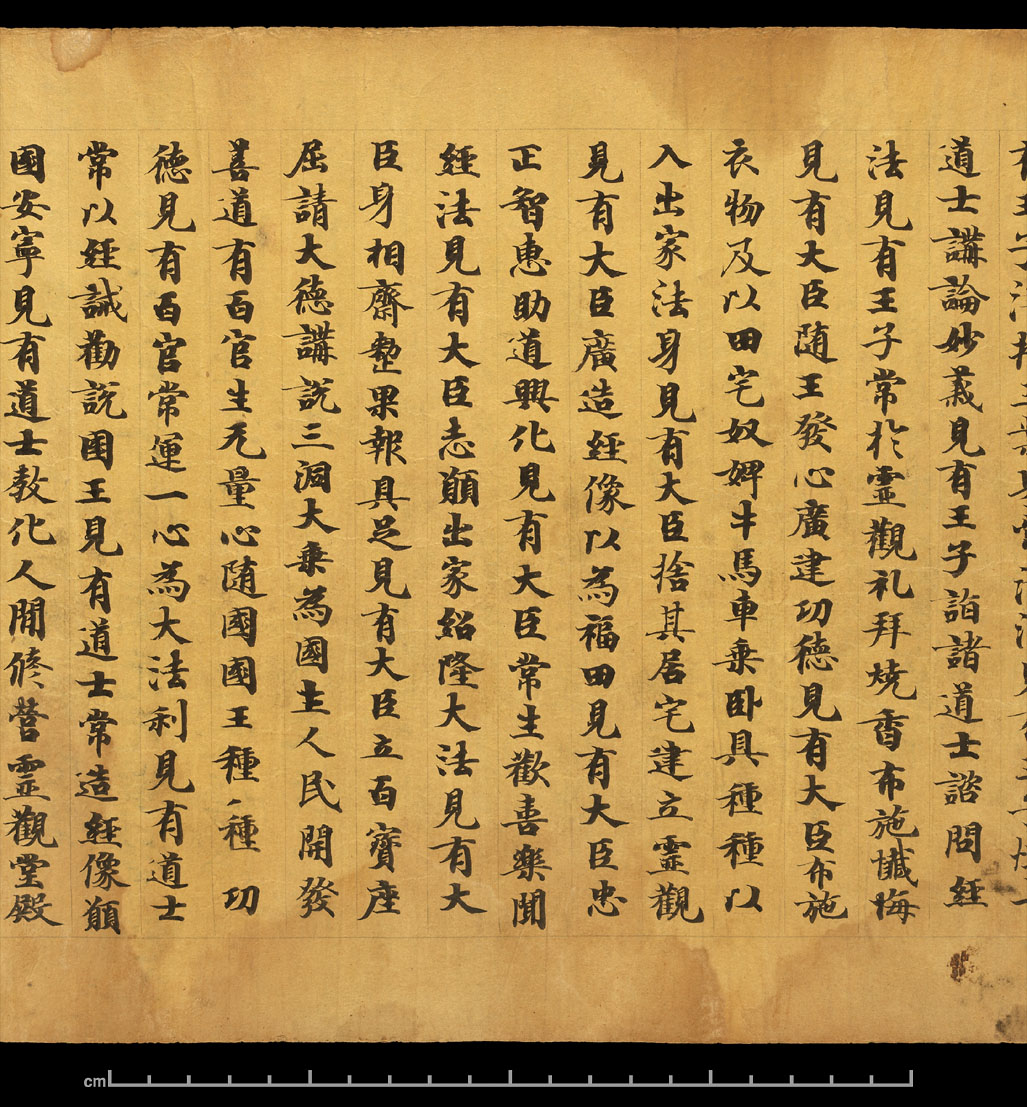 道士講論妙義見有王子詣諸道士諮問經
法見有王子常於靈觀礼拜燒香布施懺悔
見有大臣随王發心廣建功德見有大臣布施
衣物及以田宅奴婢牛馬車乗卧具種種以
入出家法身見有大臣捨其居宅建立靈觀
見有大臣廣造經像以為福田見有大臣忠
正智惠助道興化見有大臣常生歡喜樂聞
經法見有大臣志願出家紹隆大法見有大
臣身相齋整果報具足見有大臣立百寶座
屈請大德講說三洞大乗為國主人民開發
善道有百官生无量心随國國王種〻種功
德見有百官常運一心為大法利見有道士
常以經誡勸說国王見有道士常造經像願
國安寧見有道士教化人間脩營靈觀堂殿
cm